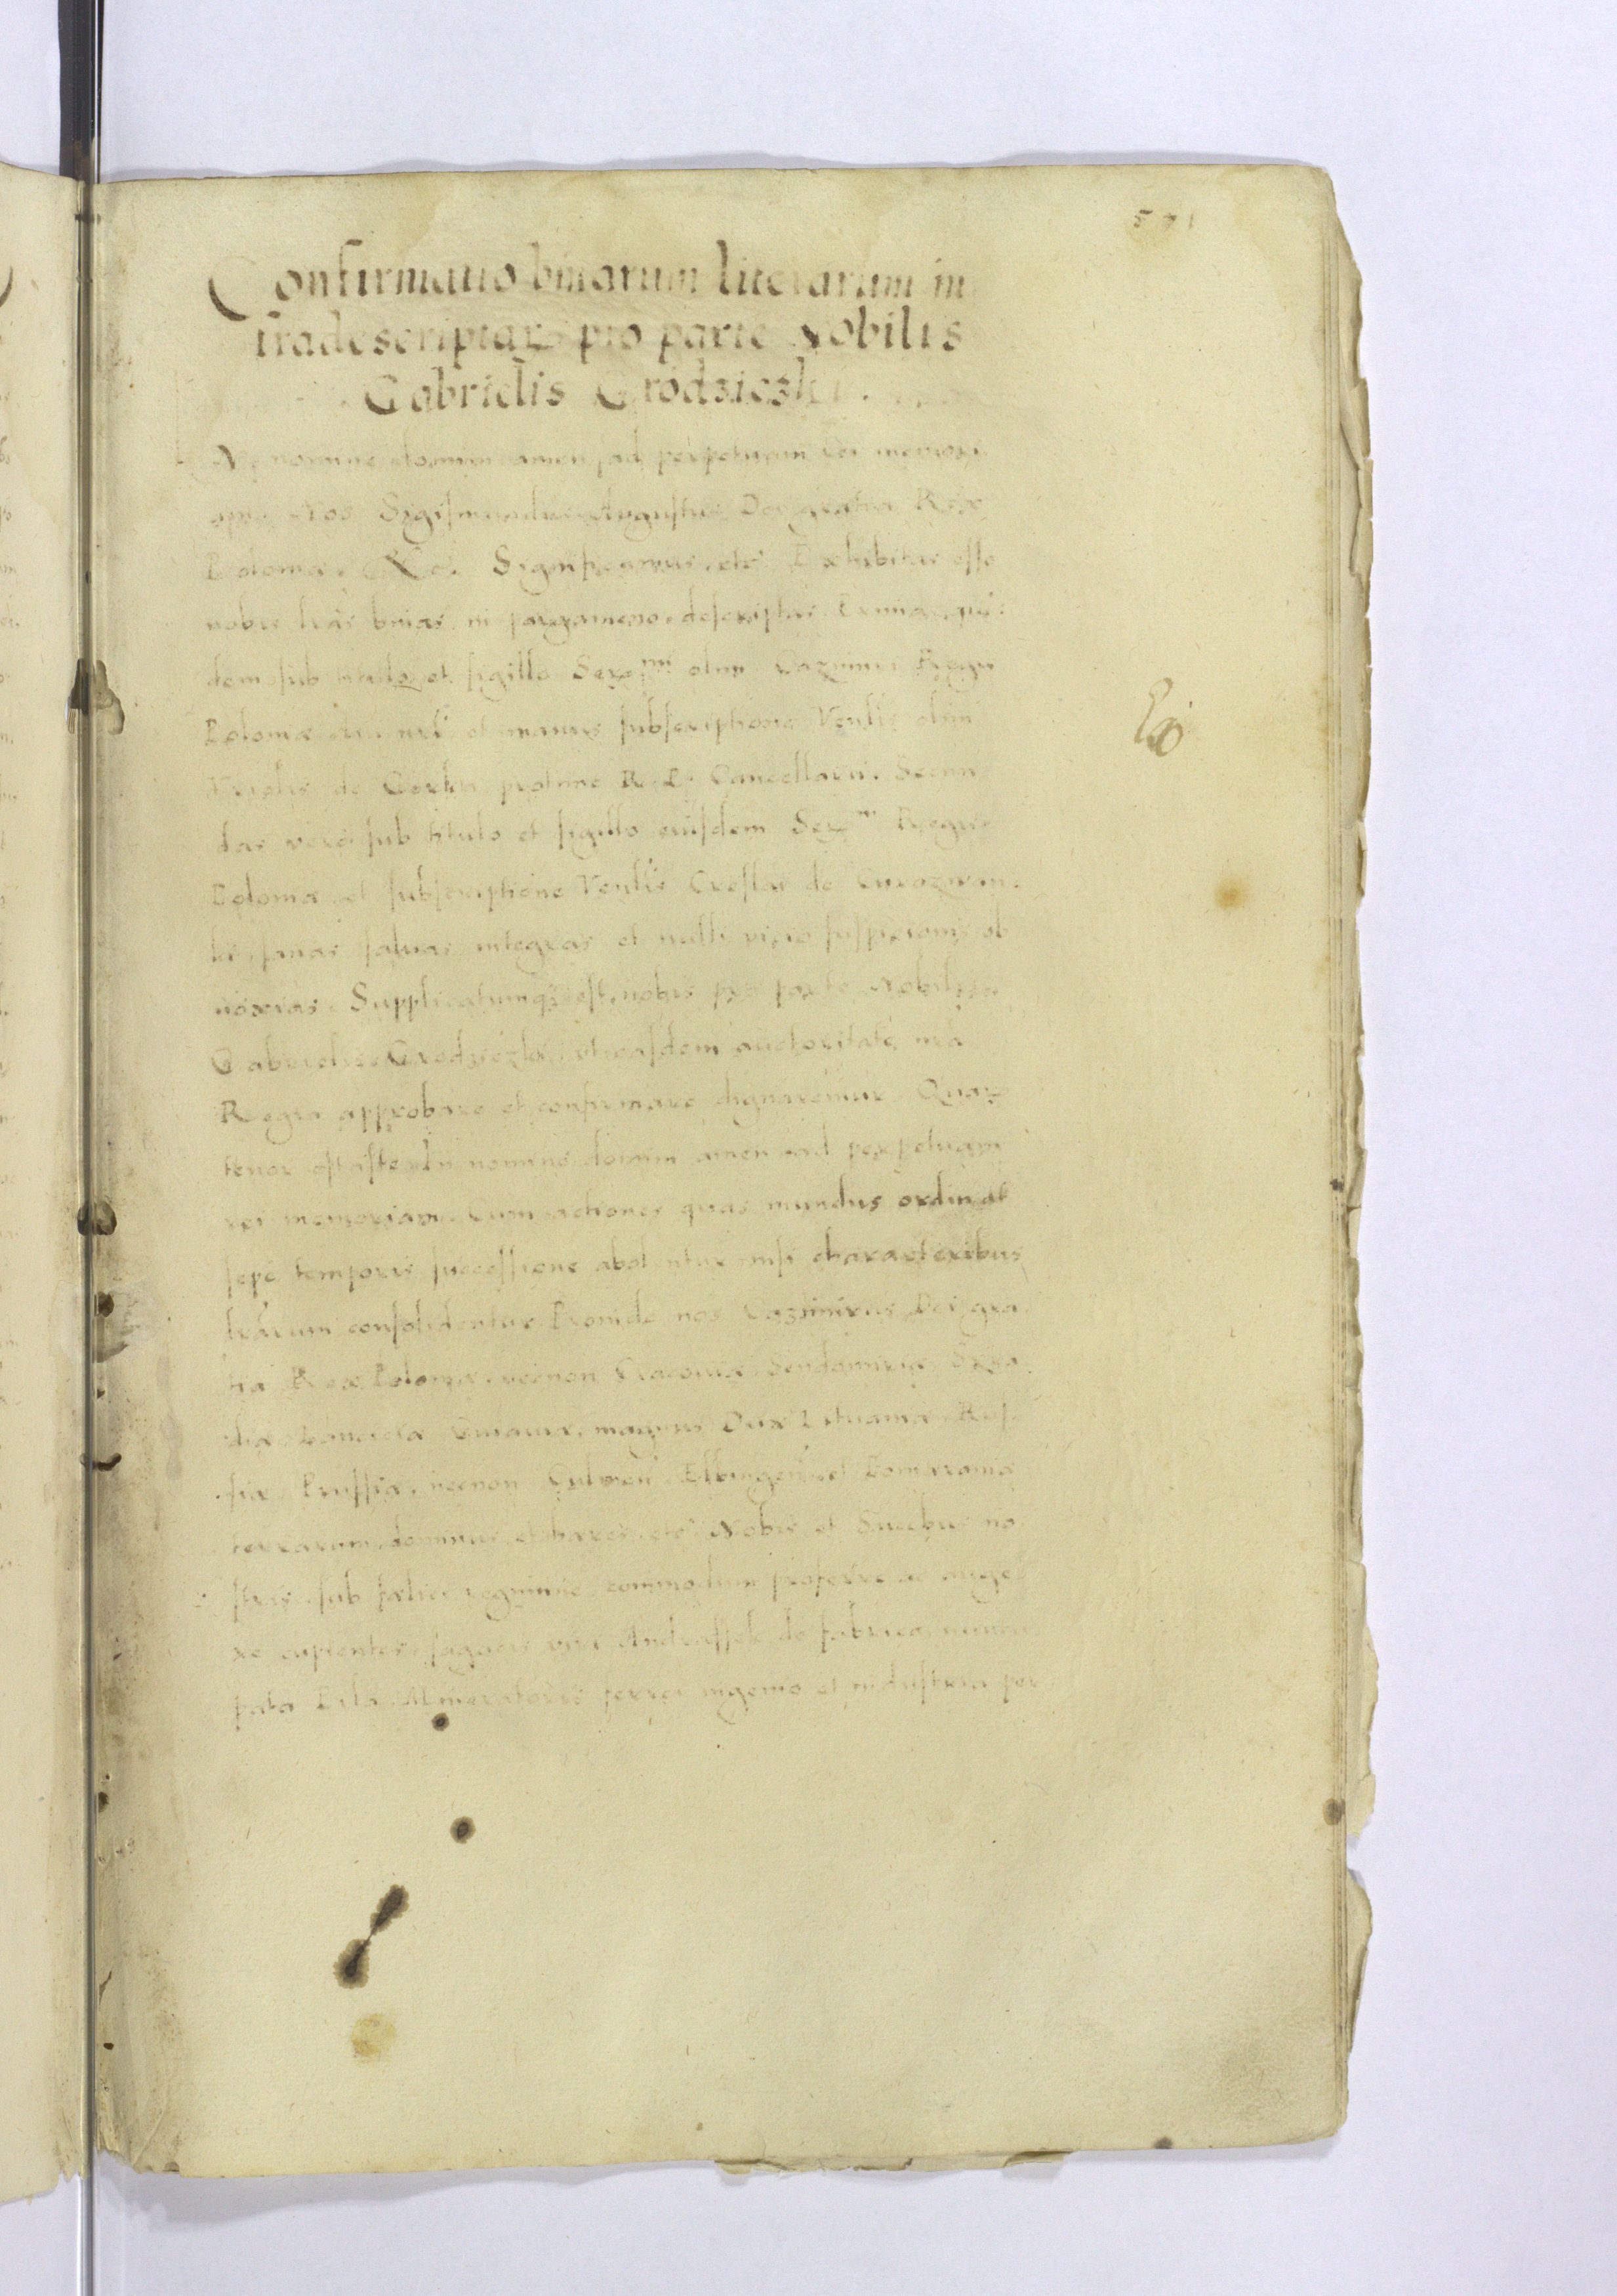 571
Confirmatio binarum literarum in
fradescriptarꝫ pro parte Nobilis
Gabrielis Grodzieczki.
In nomine domini amen ad perpetuam rei memori
am Nos Sigismundus Augustus Dei gratia Rex
Poloniæ &c. Significamus etc Exhibitas esse
nobis lrãs binas in pargameno descriptas
dem sub titulo et sigillo Sereᵐⁱ olim Cazimiri Regis
Poloniæ et manus subscriptione olim
de Cancellarii. Secun
das vero sub titulo et sigillo eiusdem Serᵐⁱ Regis
Poloniæ et subscriptione Creslai de Curozwan
ki sanas saluas integras et nulli vicio suspicionis ob
noxias. Supplicatumqꝫ est nobis pro parte Nobilis
Gabrielis Grodzieczki vt easdem auctoritate nra
Regia approbare et confirmare dignaremur. Quarꝫ
tenor est iste In nomine domini amen ad perpetuam
rei memoriam. Cum actiones quas mundus ordinat
sepe temporis successione abolentur nisi characteribus
lrãrum consolidentur. Proinde nos Cazimirus Dei gra
tia Rex Poloniæ necnon Cracouiæ Sendomiriæ Sira
diæ Lanciciæ Cuiauiæ, magnus Dux Lituaniæ Rus
siæ Prussiæ, necnon Culmen Elbingen et Pomeraniæ
terrarum dominus et hæres etc Nobis et no
stris sub fælici regimine commodum proferre ac auge
re cupientes, sagacis viri de fabrica
pata Pila Mineratoris ferri ingenio et industria per